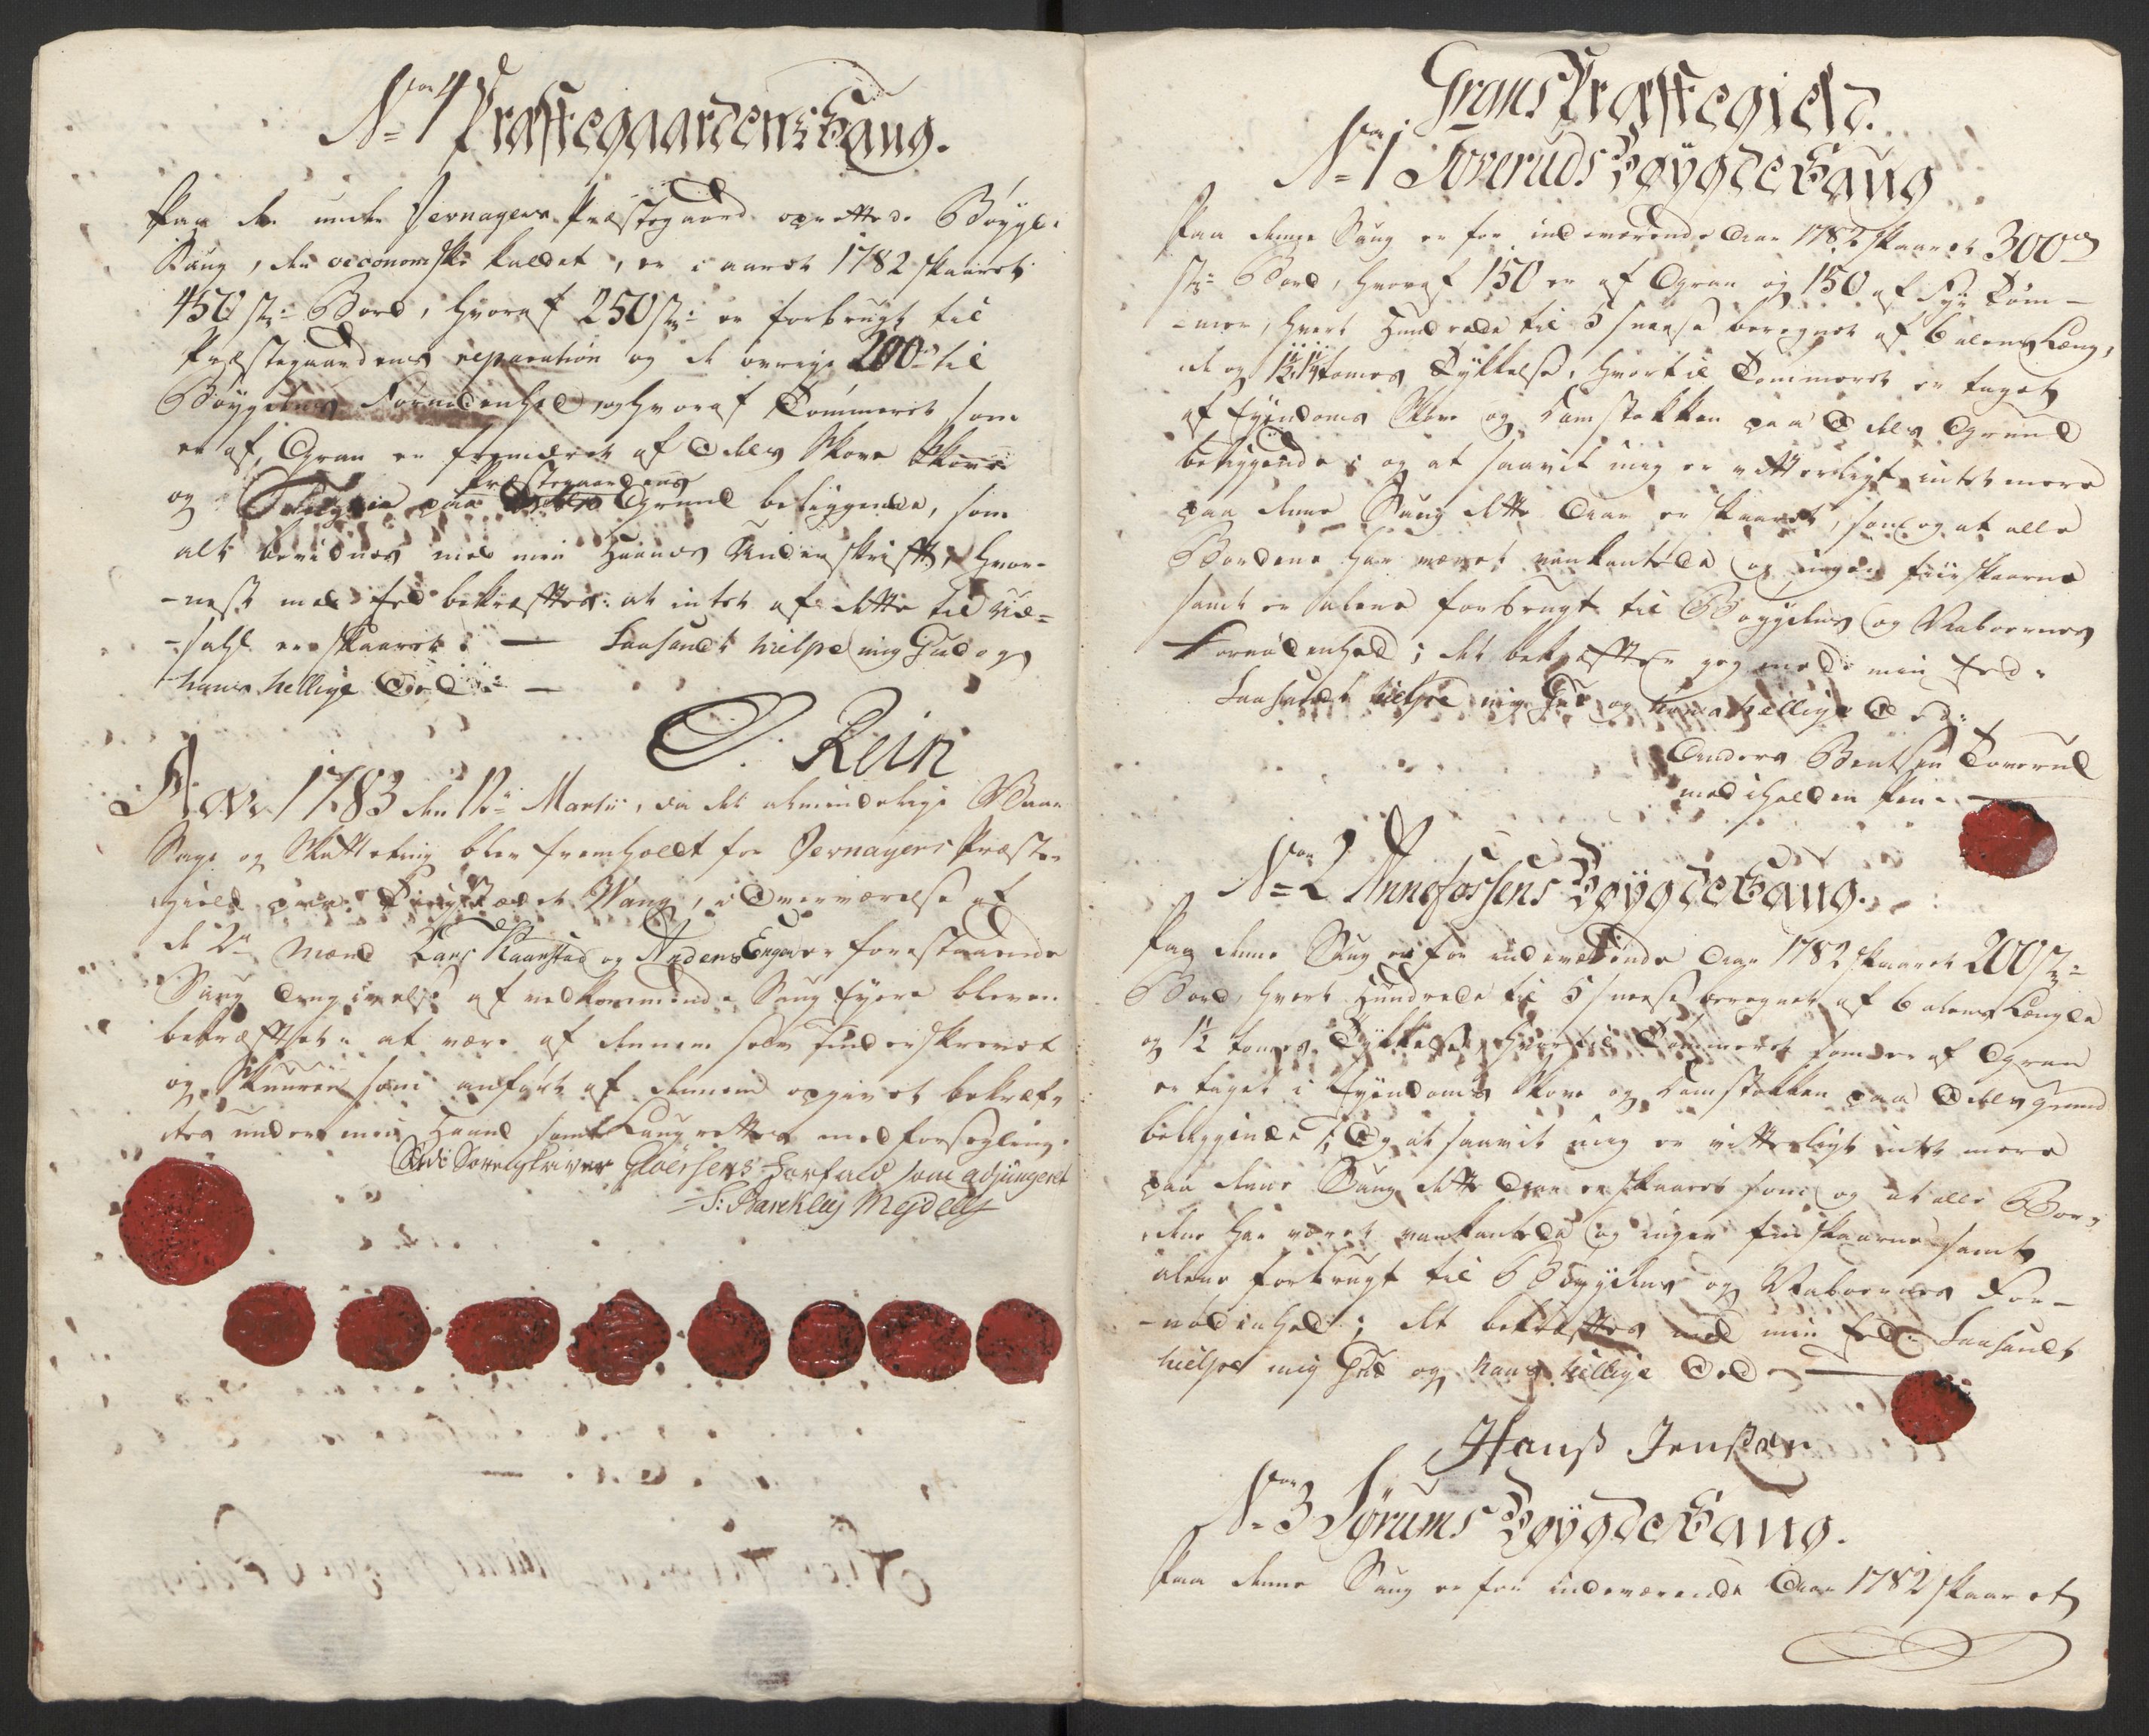 No 4 Præstegaardens Saug.
Paa de under Jevnagers Præstegaard oprettede Bøygde
Saug, den oeconomiske kaldet, er i aaret 1782 skaaret
450 st: Bord, hvoraf 250 st: er forbrugt til
Præstegaardens reparation og de øvrige 200de til
Bøygdens Fornødenhed, og hvoraf Tømmeret som
er af Gran er fremdrevet af Odels Skove
og paa Præstegaardens Grund beliggende, som
alt bevidnes med min Haands Underskrift, hvor-
-nest med Eed bekræftes: at intet af dette til Ud-
-salg er skaaret. — Saasandt hielpe mig Gud og
hans hellige Ord. —
D. Rein
Aar 1783 den 12te Martii, da det almindelige Vaar
Sage og Skatteting blev fremholdt for Jevnagers Præste-
gield paa Tingstædet Wang, i Overværelse af
de 2de Mænd Lars Raanstad og Anders Enger er forestaaende
Saug Angivelse af vedkommende Saug Eyere bleven
bekræftet at være af dennem selv underskrevet
og Skuuren som anført af dennem opgivet bekræf-
tes under min Haand samt Laugrettes medforsegling.
Udi Sorenskriver Gloërsens Forfald som adjungeret
S: Barckley Mejdell
Grans Præstegield.
No 1 Toveruds Bøygde Saug
Paa denne Saug er for indeværende Aar 1782 skaaret 300de
st: Bord, hvoraf 150 er af Gran og 150 af Fyr Tøm-
-mer, hvert Hundrede til 5 sneese beregnet af 6 alens Læng-
de og 1½ 1¼ tomes Tykkelse, hvortil Tømmeret er taget
af Eyendoms Skov og Damstokken paa Odels Grund
beliggende; og at saavit mig er vitterligt intet mere
paa denne Saug dette Aar er skaaret, som og at alle
Bordene har været vankantede og ingen fiirskaarne
samt er alene forbrugt til Bøygdens og Naboernes
Fornødenhed; det bekræfter jeg med min Eed.
Saasandt hielpe mig Gud og hans hellige Ord.
Anders Bentsen Toverud
med iholden Pen. —
No 2 Annefossens Bøygde Saug.
Paa denne Saug er for indeværende Aar 1782 skaaret 200 st:
Bord, hvert Hundrede til 5 sneese beregnet af 6 alens Længde
og 1½ tomes Tykkelse, hvortil Tømmeret som er af Gran
er taget i Eyendoms Skov og Damstokken paa Odels Grund
beliggende; Og at saavit mig er vitterligt intet mere
paa denne Saug dette Aar er skaaret som og at alle Bor-
dene har været vankantede og ingen fiirskaarne samt
alene forbrugt til Bøygdens og Naboernes For-
-nødenhed; det bekræftes med min Eed. Saasandt
hielpe mig Gud og hans hellige Ord —
Hanß Jenßøn
No 3 Sørums Bøygde Saug.
Paa denne Saug er for indeværende Aar 1782 skaaret